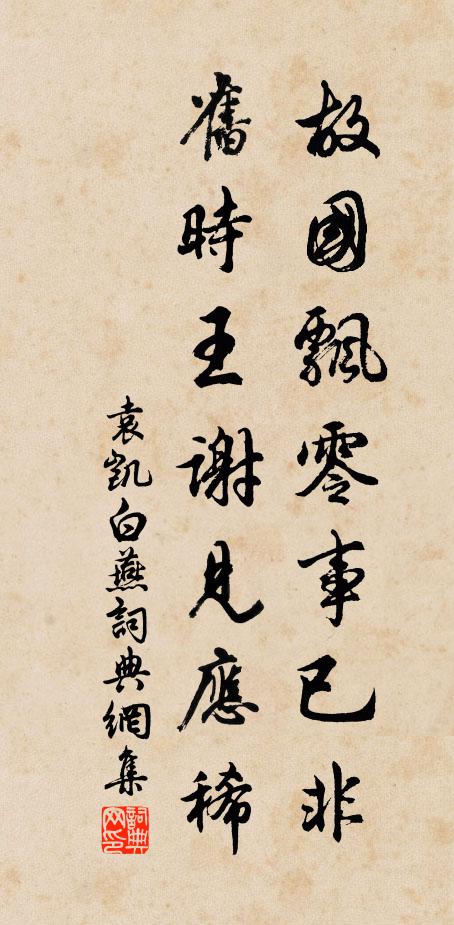 故國飄零事已非
舊時王謝見應稀
袁凱白燕詞典網集
詞典網印